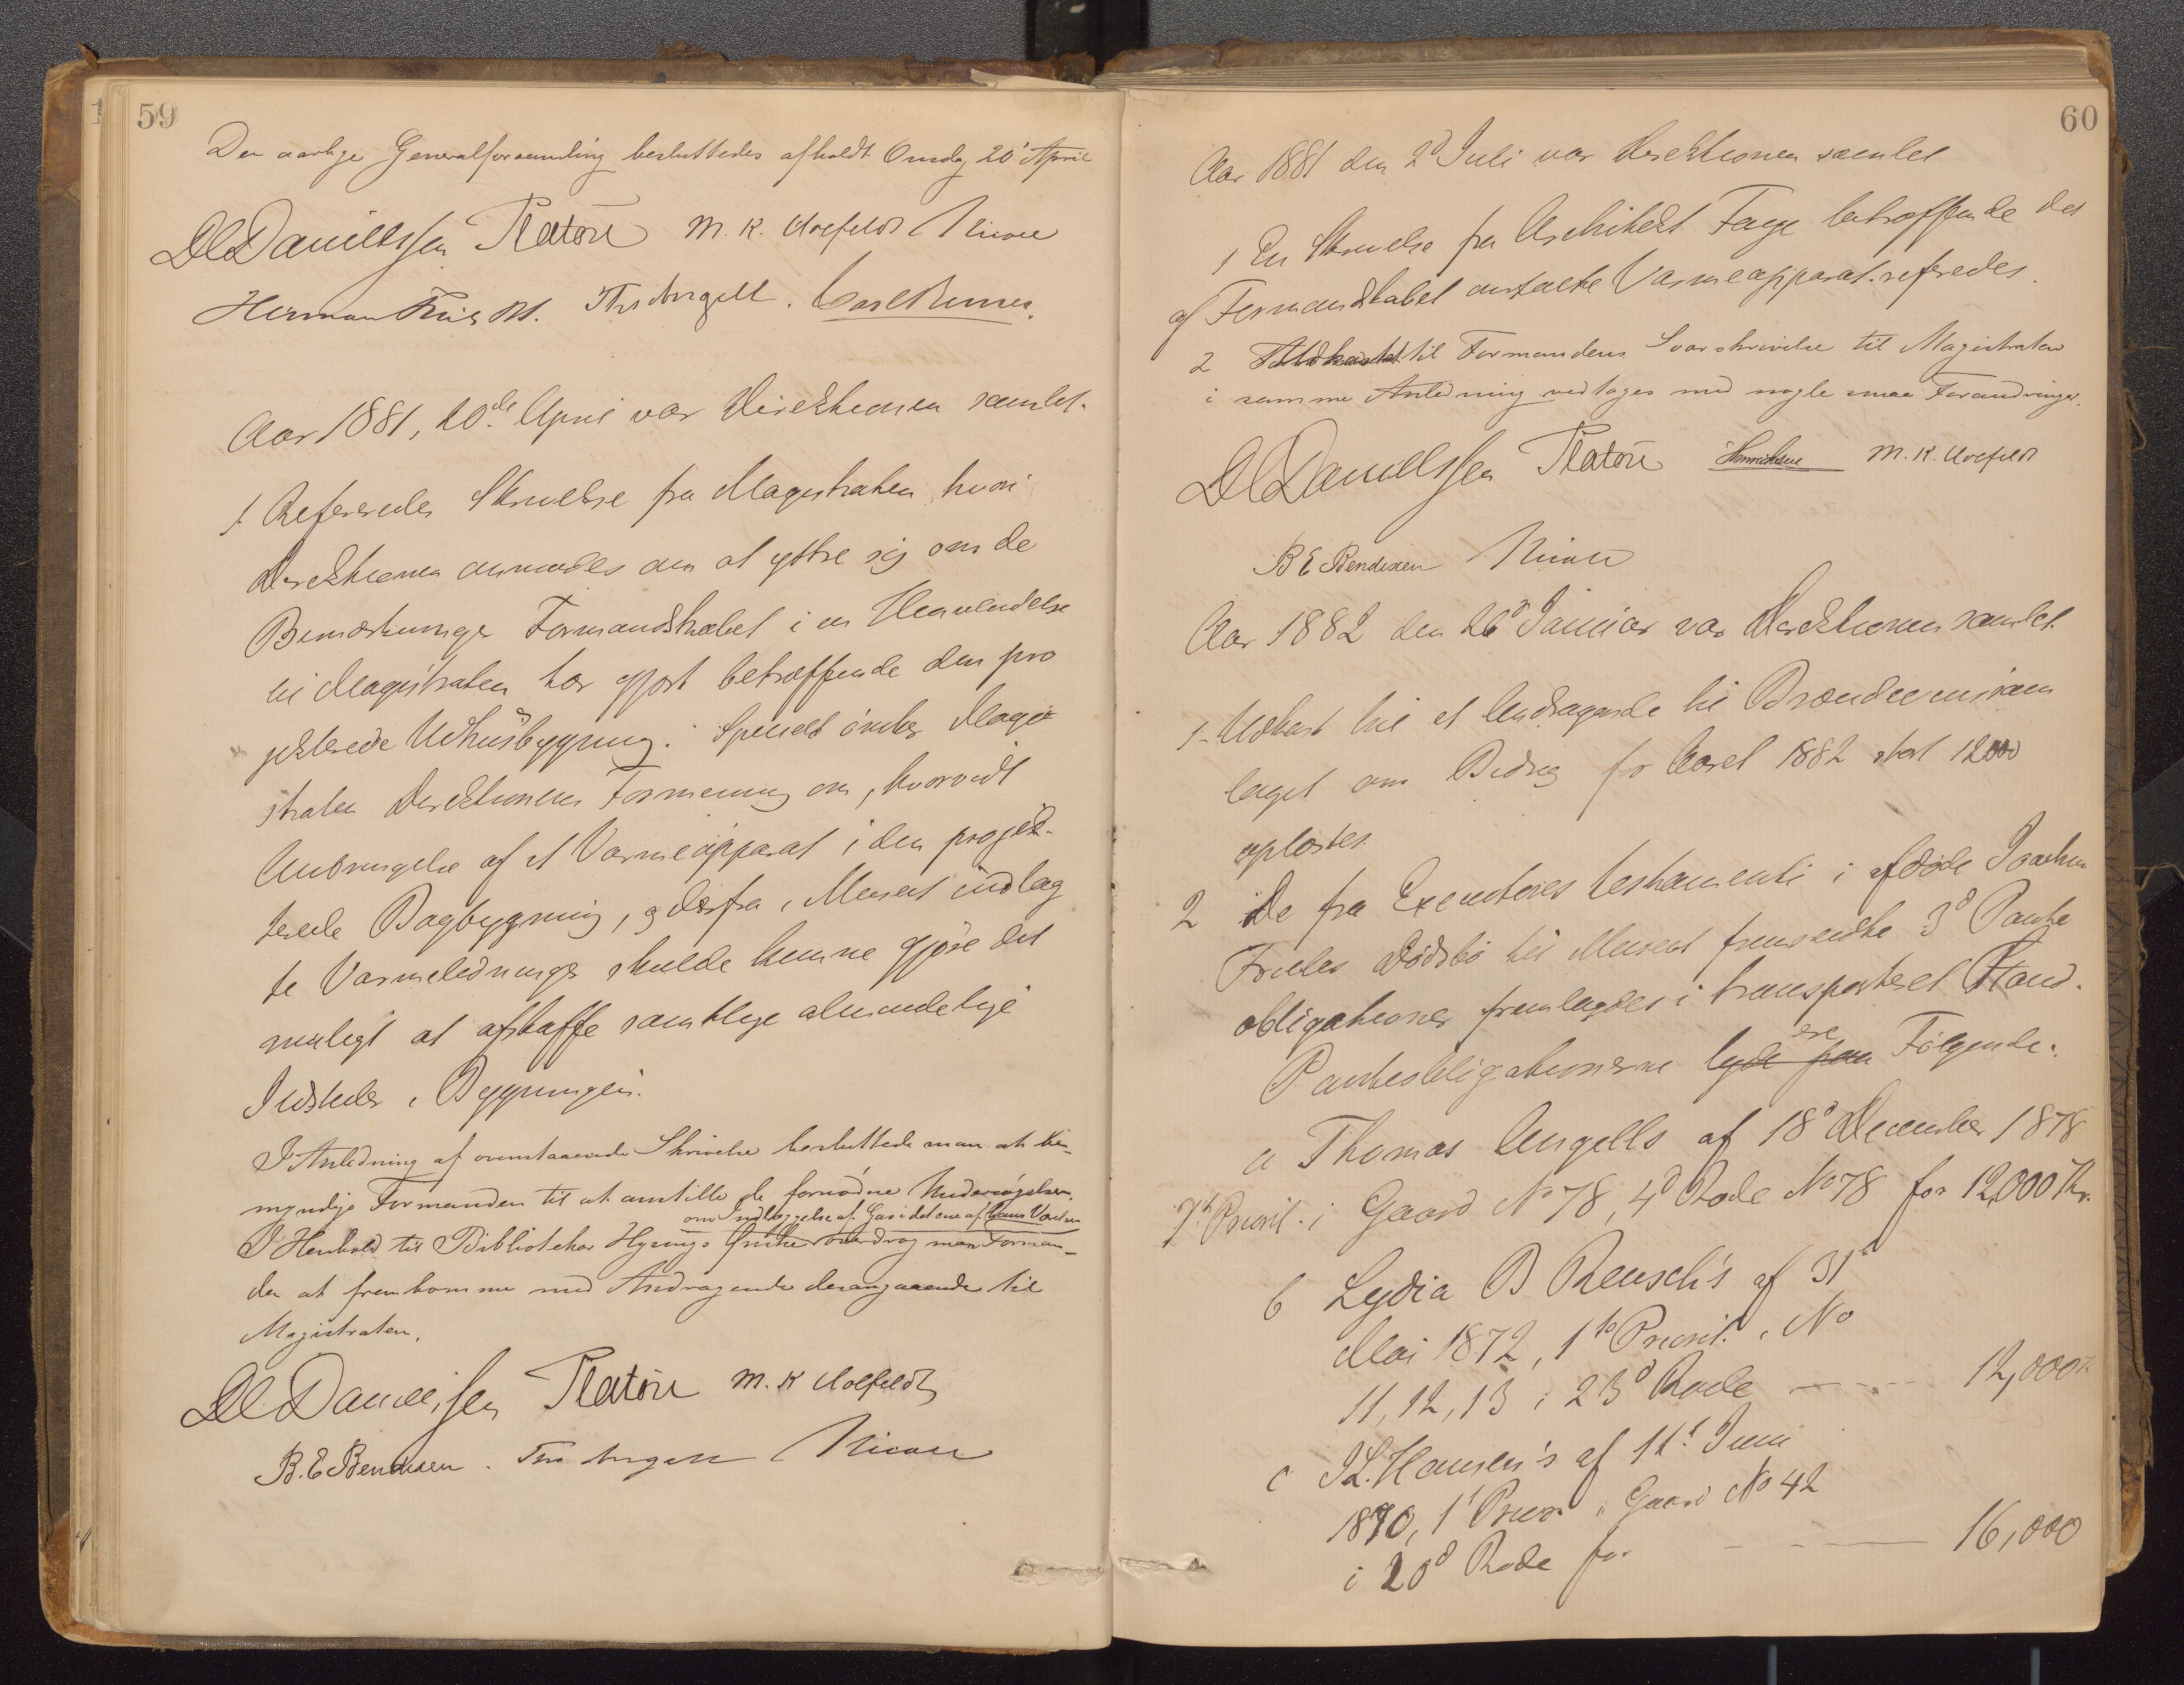 59
Den aarlige Generalforsamling besluttedes afholdt Onsdag 20' April
DCDanielssen Platou M. K. Nicoll
Herman Friele
Aar 1881, 20de April var Direktionen samlet.
1 Refereredes Skrivelse fra Magistraten hvori
Direktionen anmodes om at yttre sig om de
Bemærkninger Formandskabet i en Henvendelse
til Magistraten har gjort betræffende den pro
jekterede Udhusbygning. Specielt ønsker Magi
straten Direktionens Formening om, hvorvidt
Anbringelse af et Varmeapparat i den projek-
terede Bagbygning, og derfra i Museet indlag
te Varmeledninger skulde kunne gjøre det
muligt at afskaffe samtlige almindelige
Ildsteder i Bygningen.
I Anledning af ovenstaaende Skrivelse besluttede man at be-
myndige Formanden til at anstille de fornødne Undersøgelser.
om Indlæggelse af Gas i det ene af
I Henhold til Bibliotekar overdrog man Forman-
den at fremkomme med Andragende desangaaende til
Magistraten.
DCDanielssen Platou M. K
B. E Bendixen. Nicoll
60
Aar 1881 den 2d Juli var Direktionen samlet
1 En Skrivelse fra Architekt betræffende det
af Formandskabet omtalte Varmeapparat refereredes.
2 Udkastet til Formandens Svarskrivelse til Magistraten
i samme Anledning vedtoges med nogle smaa Forandringer.
DCDanielssen Platou M. K.
B E Bendixen Nicoll
Aar 1882 den 26d Januar var Direktionen samlet
1- Udkast til et Andragende til Brændevinssam
laget om Bidrag for Aaret 1882 stort 12000
oplæstes
2 De fra Executores testamenti i afdøde Joachim
Frieles Dødsbo til Museet fremsendte 3d Pante
obligationer fremlagdes i transporteret Stand.
ere
Panteobligationerne lyde paa Følgende:
a Thomas Angells af 18d December 1878
1st Priorit. i Gaard No 78, 4d Rode No 78 for 12,000 Kr.
b Lydia B Reusch's af 31t
Mai 1872, 1te Priorit. i No
11, 12, 13 i 23d Rode - - - 12,000 Kr
c J L. Hansen's af 11t Juni
1870, 1t Prior i Gaard No 42
i 20d Rode for - - - 16,000